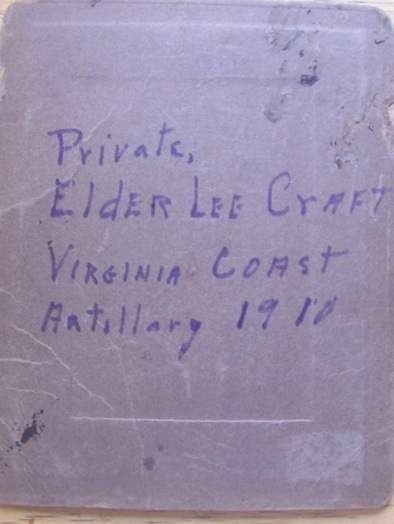 Private,
Elder Lee Craft
Virginia Coast
Artillary 1910